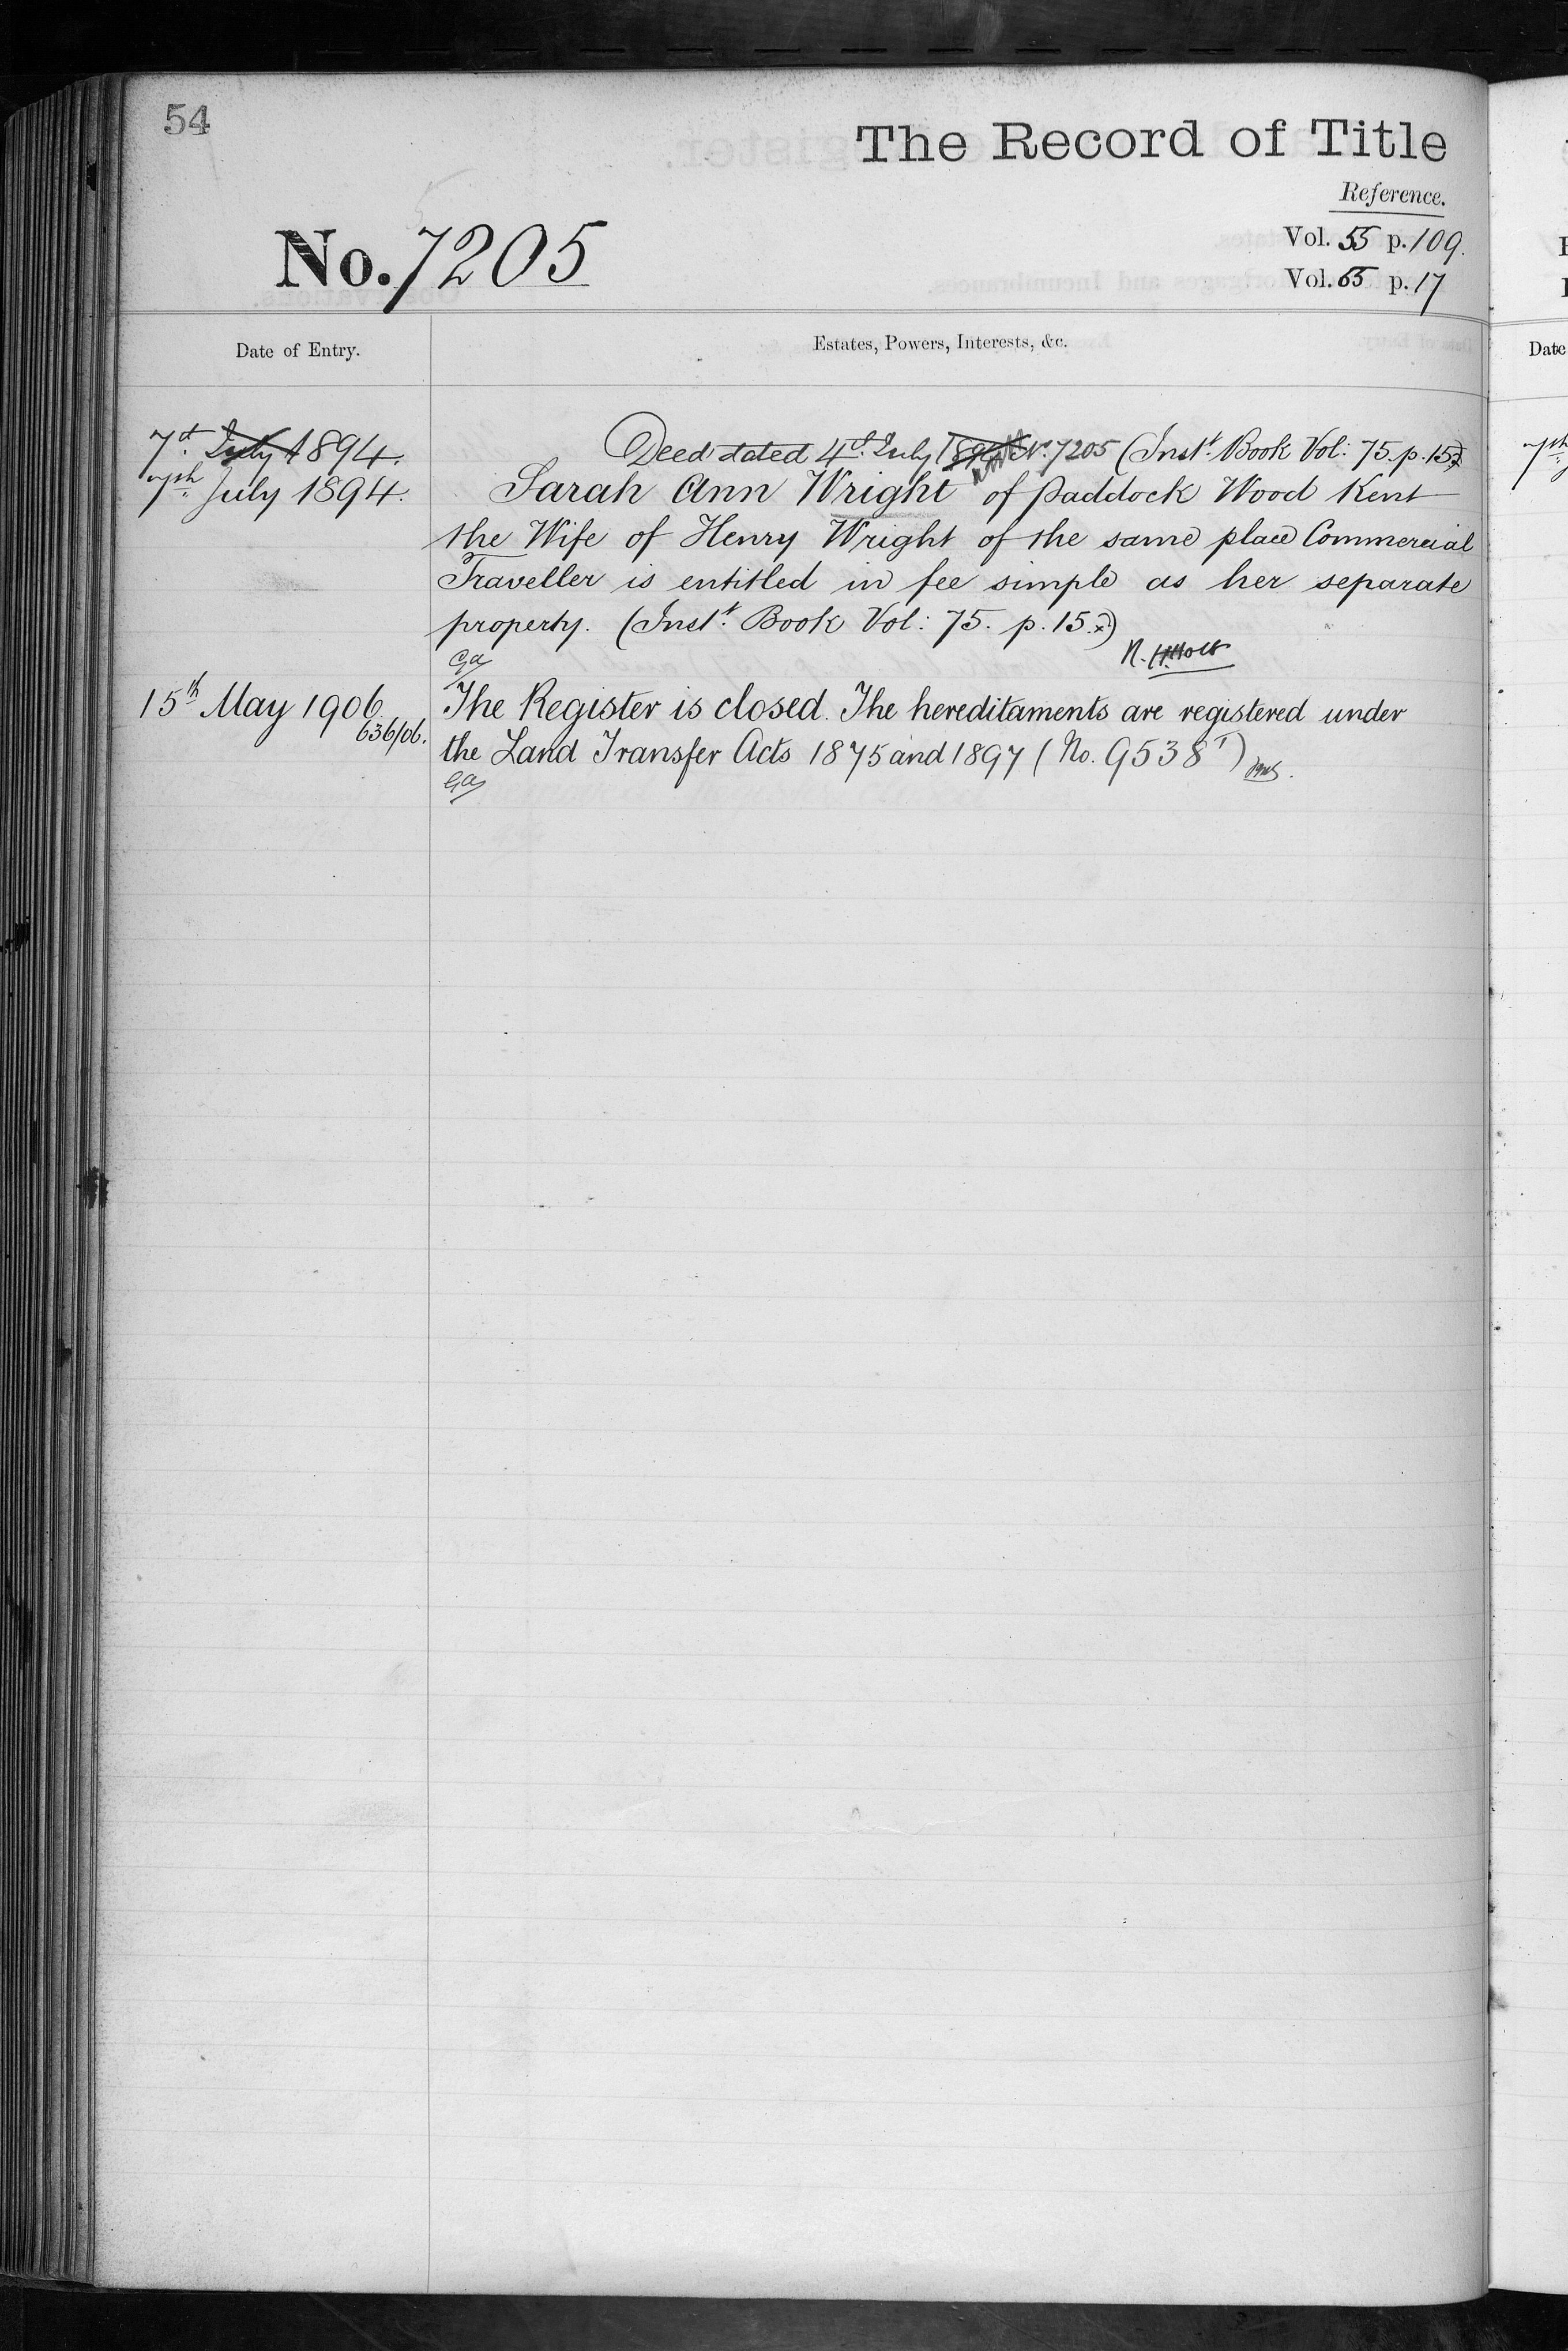 54
The Record of Title
Reference.
No. 7205
Vol. 55 p. 109.
Vol. 65 p. 17
Date of Entry.
Estates, Powers, Interests, &c.
7th July 1894.
Deed dated 4th July 1894 No. 7205 (Inst. Book Vol: 75. p. 15.)
7th July 1894.
Sarah Ann Wright of Paddock Wood Kent
the Wife of Henry Wright of the same place Commercial
Traveller is entitled in fee simple as her separate
property. (Inst. Book Vol: 75. p. 15.)
15th May 1906
636/06.
The Register is closed. The hereditaments are registered under
the Land Transfer Acts 1875 and 1897 (No. 9538)
Date
7th